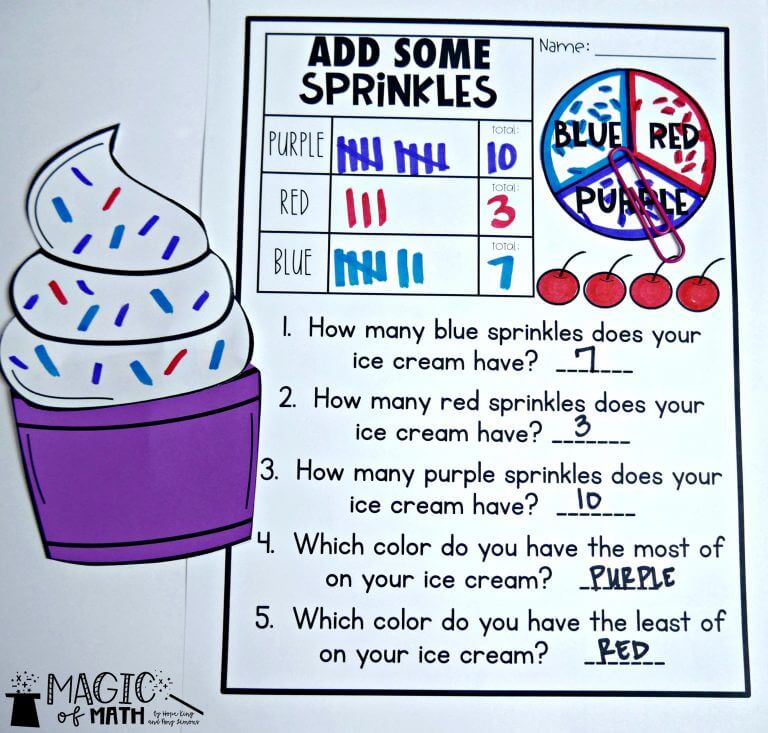 ADD SOME
SPRINKLES
Name:
PURPLE total: 10
RED total: 3
BLUE total: 7
BLUE RED
PURPLE
1. How many blue sprinkles does your
ice cream have? 7
2. How many red sprinkles does your
ice cream have? 3
3. How many purple sprinkles does your
ice cream have? 10
4. Which color do you have the most of
on your ice cream? PURPLE
5. Which color do you have the least of
on your ice cream? RED
MAGIC
of MATH by Hope King
and Amy Lemons